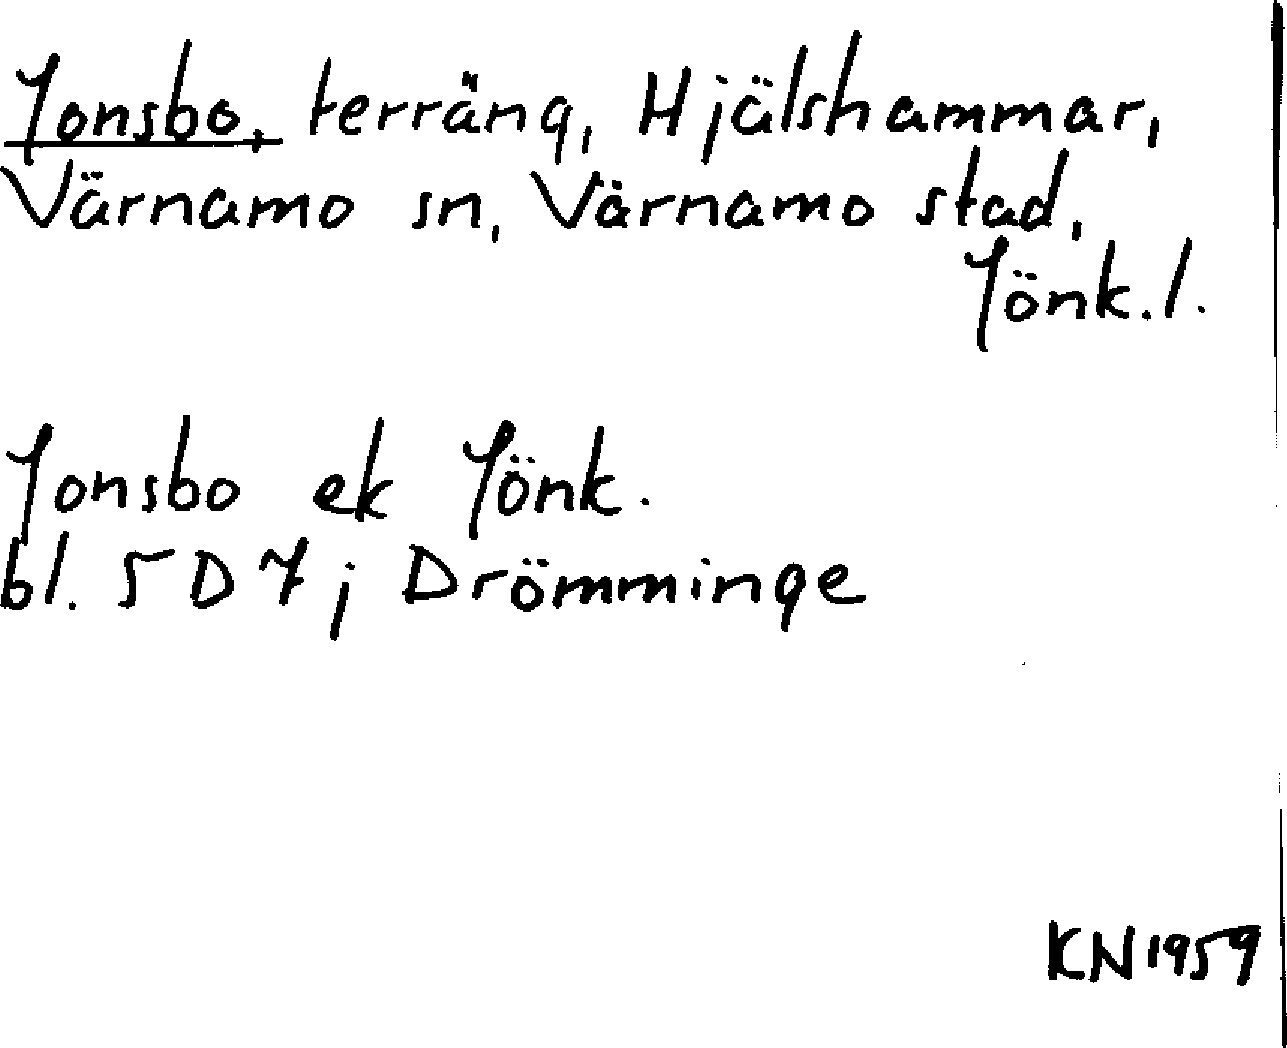 Jonsbo, terräng, Hjälshammar,
Värnamo sn, Värnamo stad,
Jönk.l.
Jonsbo ek Jönk.
bl. 5D7j Drömminge
KN1959